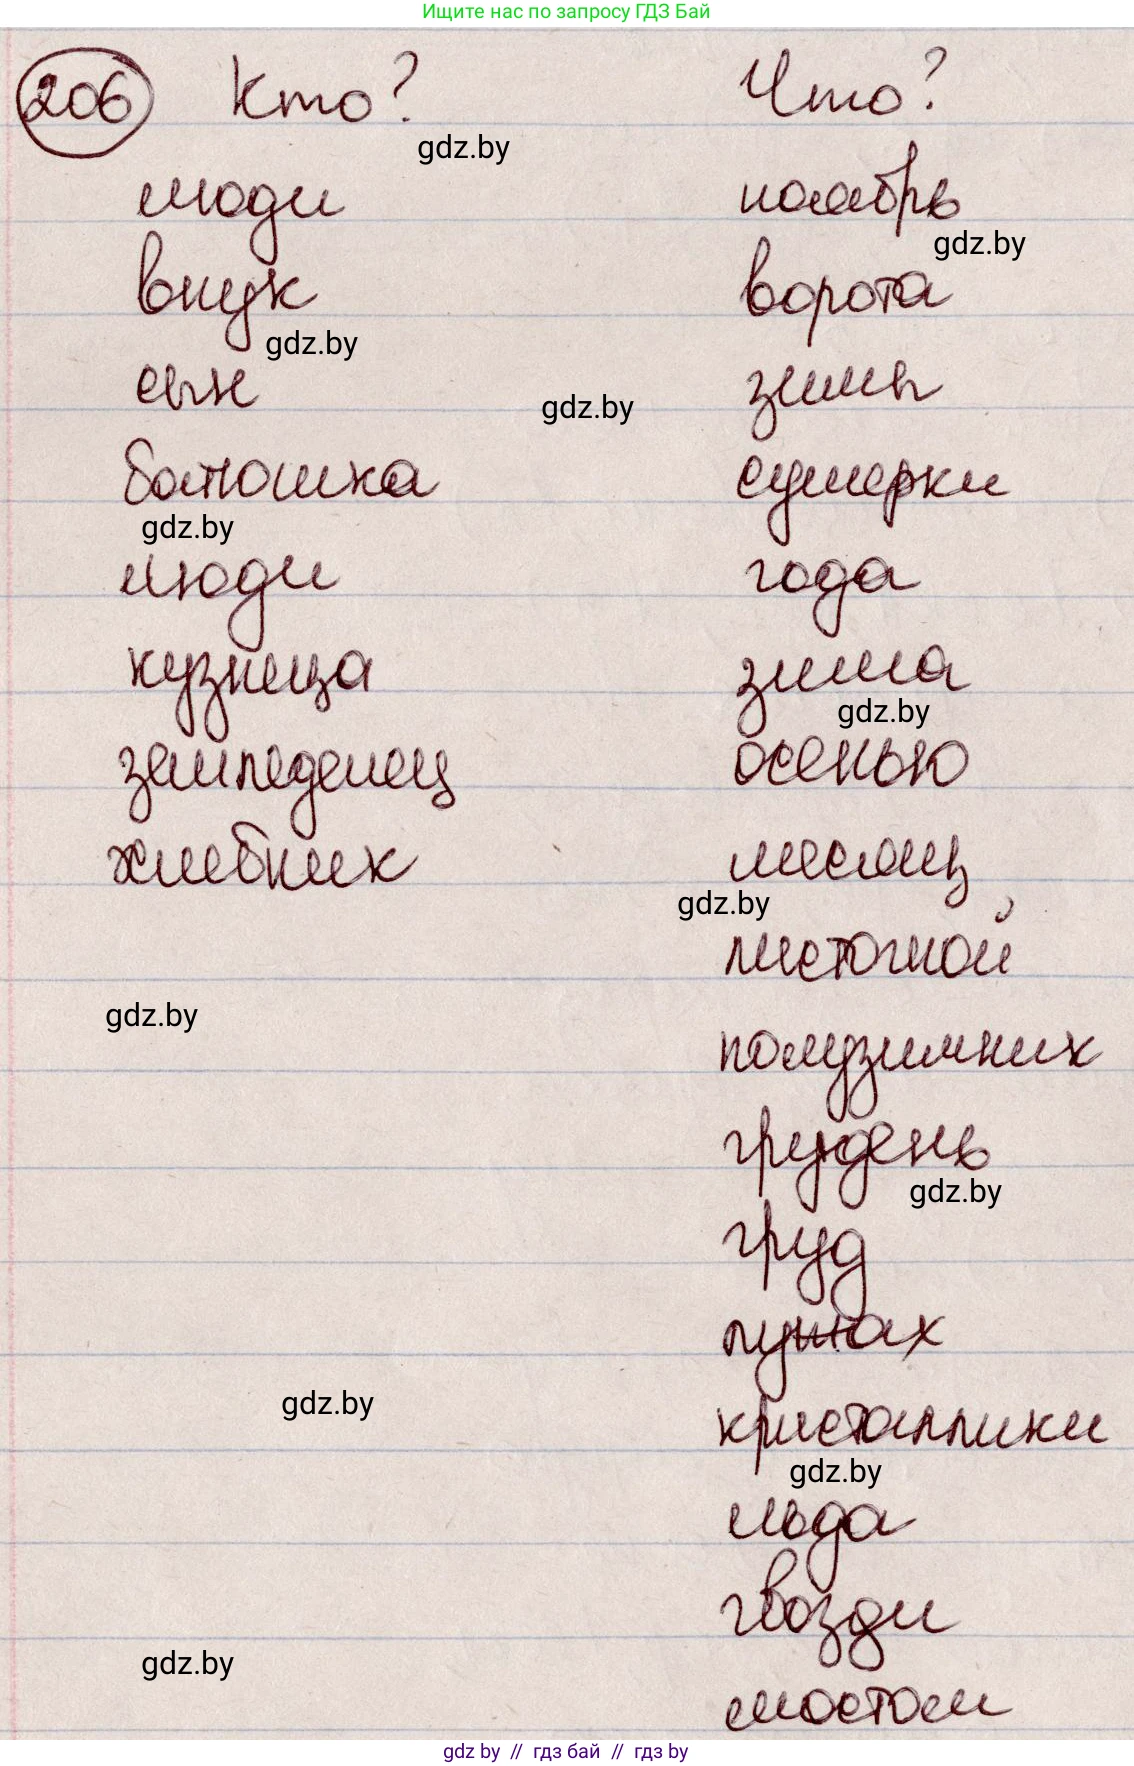 Ищите нас по запросу ГДЗ Бай
206 Кто? Что?
gdz.by
люди ноябрь
gdz.by
внук ворота
gdz.by
сын зимы
gdz.by
батюшка сумерки
gdz.by
люди года
кузница зима
gdz.by
земледелец осенью
хлебник месяц
gdz.by
листогной
gdz.by
полузимник
грудень
gdz.by
груд
лужах
gdz.by
кристаллики
gdz.by
льда
гвозди
gdz.by
мостом
gdz by // гдз бай // гдз by